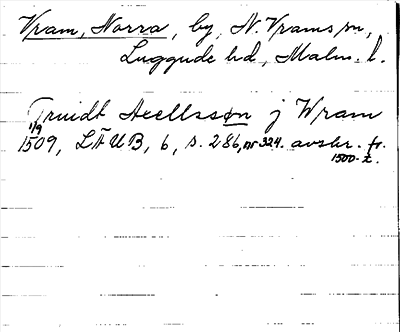 Vram, Norra, by, N. Vrams sn,
Luggude hd, Malm. l.
Truidt Axellssøn j Wram
1/9
1509, LÄUB, 6, s. 286, nr 324. avskr. fr.
1500-t.